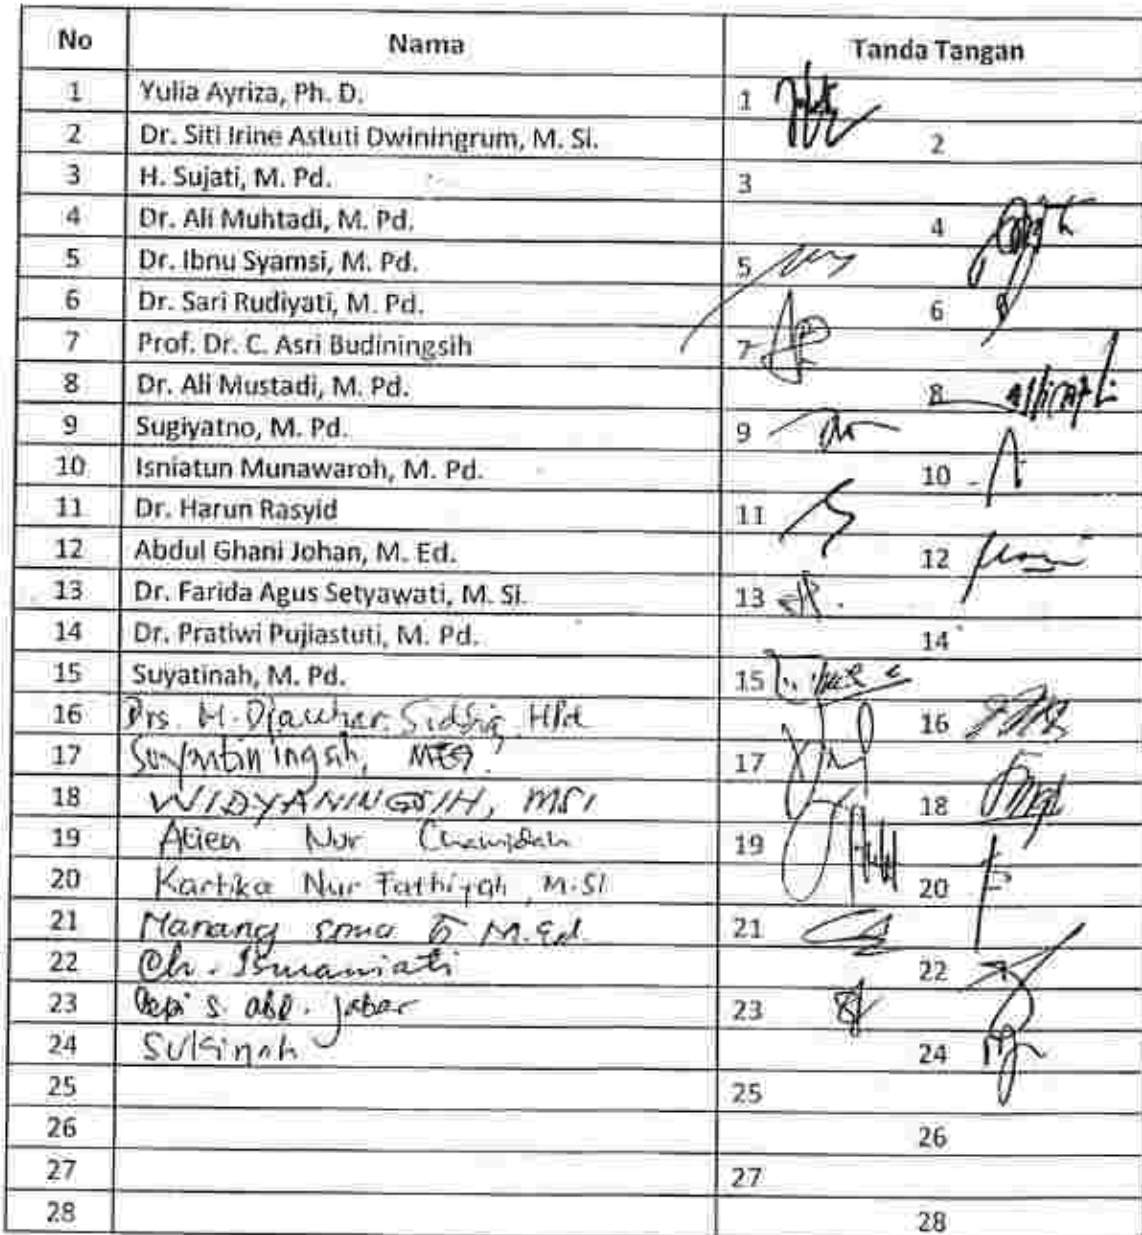 No Nama Tanda Tangan
1 Yulia Ayriza, Ph. D. 1
2 Dr. Siti Irine Astuti Dwiningrum, M. Si. 2
3 H. Sujati, M. Pd. 3
4 Dr. Ali Muhtadi, M. Pd. 4
5 Dr. Ibnu Syamsi, M. Pd. 5
6 Dr. Sari Rudiyati, M. Pd. 6
7 Prof. Dr. C. Asri Budiningsih 7
8 Dr. Ali Mustadi, M. Pd. 8
9 Sugiyatno, M. Pd. 9
10 Isniatun Munawaroh, M. Pd. 10
11 Dr. Harun Rasyid 11
12 Abdul Ghani Johan, M. Ed. 12
13 Dr. Farida Agus Setyawati, M. Si. 13
14 Dr. Pratiwi Pujiastuti, M. Pd. 14
15 Suyatinah, M. Pd. 15
16 Drs. H. Djauhar Siddiq, MPd 16
17 Suyantiningsih, 17
18 WIDYANINGSIH, MSi 18
19 Atien Nur Chamidah 19
20 Kartika Nur Fathiyah, M.Si 20
21 Manang M.Ed. 21
22 Ch. Ismaniati 22
23 Cepi S. abd. jabar 23
24 Sukinah 24
25 25
26 26
27 27
28 28